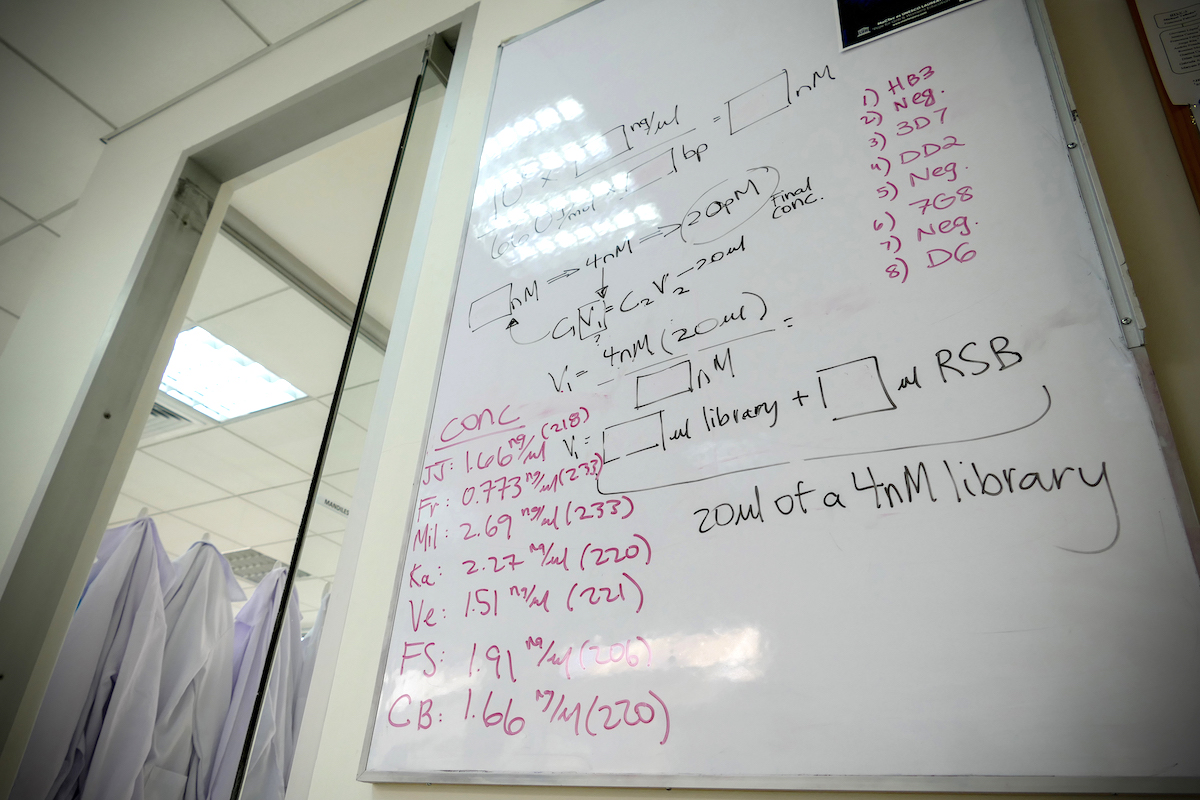 10⁶ × [ ] ng/µl = [ ] nM
660 g/mol × [ ] bp
[ ] nM ⇒ 4nM ⇒ (20pM) Final conc.
C₁ V₁ = C₂ V₂ - 20µl
?
V₁ = 4nM (20µl) =
[ ] nM
V₁ = [ ] µl library + [ ] µl RSB
20µl of a 4nM library
1) HB3
2) Neg.
3) 3D7
4) DD2
5) Neg.
6) 7G8
7) Neg.
8) D6
conc
JJ: 1.66 ng/µl (218)
Fr: 0.773 ng/µl (233)
Mil: 2.69 ng/µl (233)
Ka: 2.27 ng/µl (220)
Ve: 1.51 ng/µl (221)
FS: 1.91 ng/µl (206)
CB: 1.66 ng/µl (220)
MANDILES